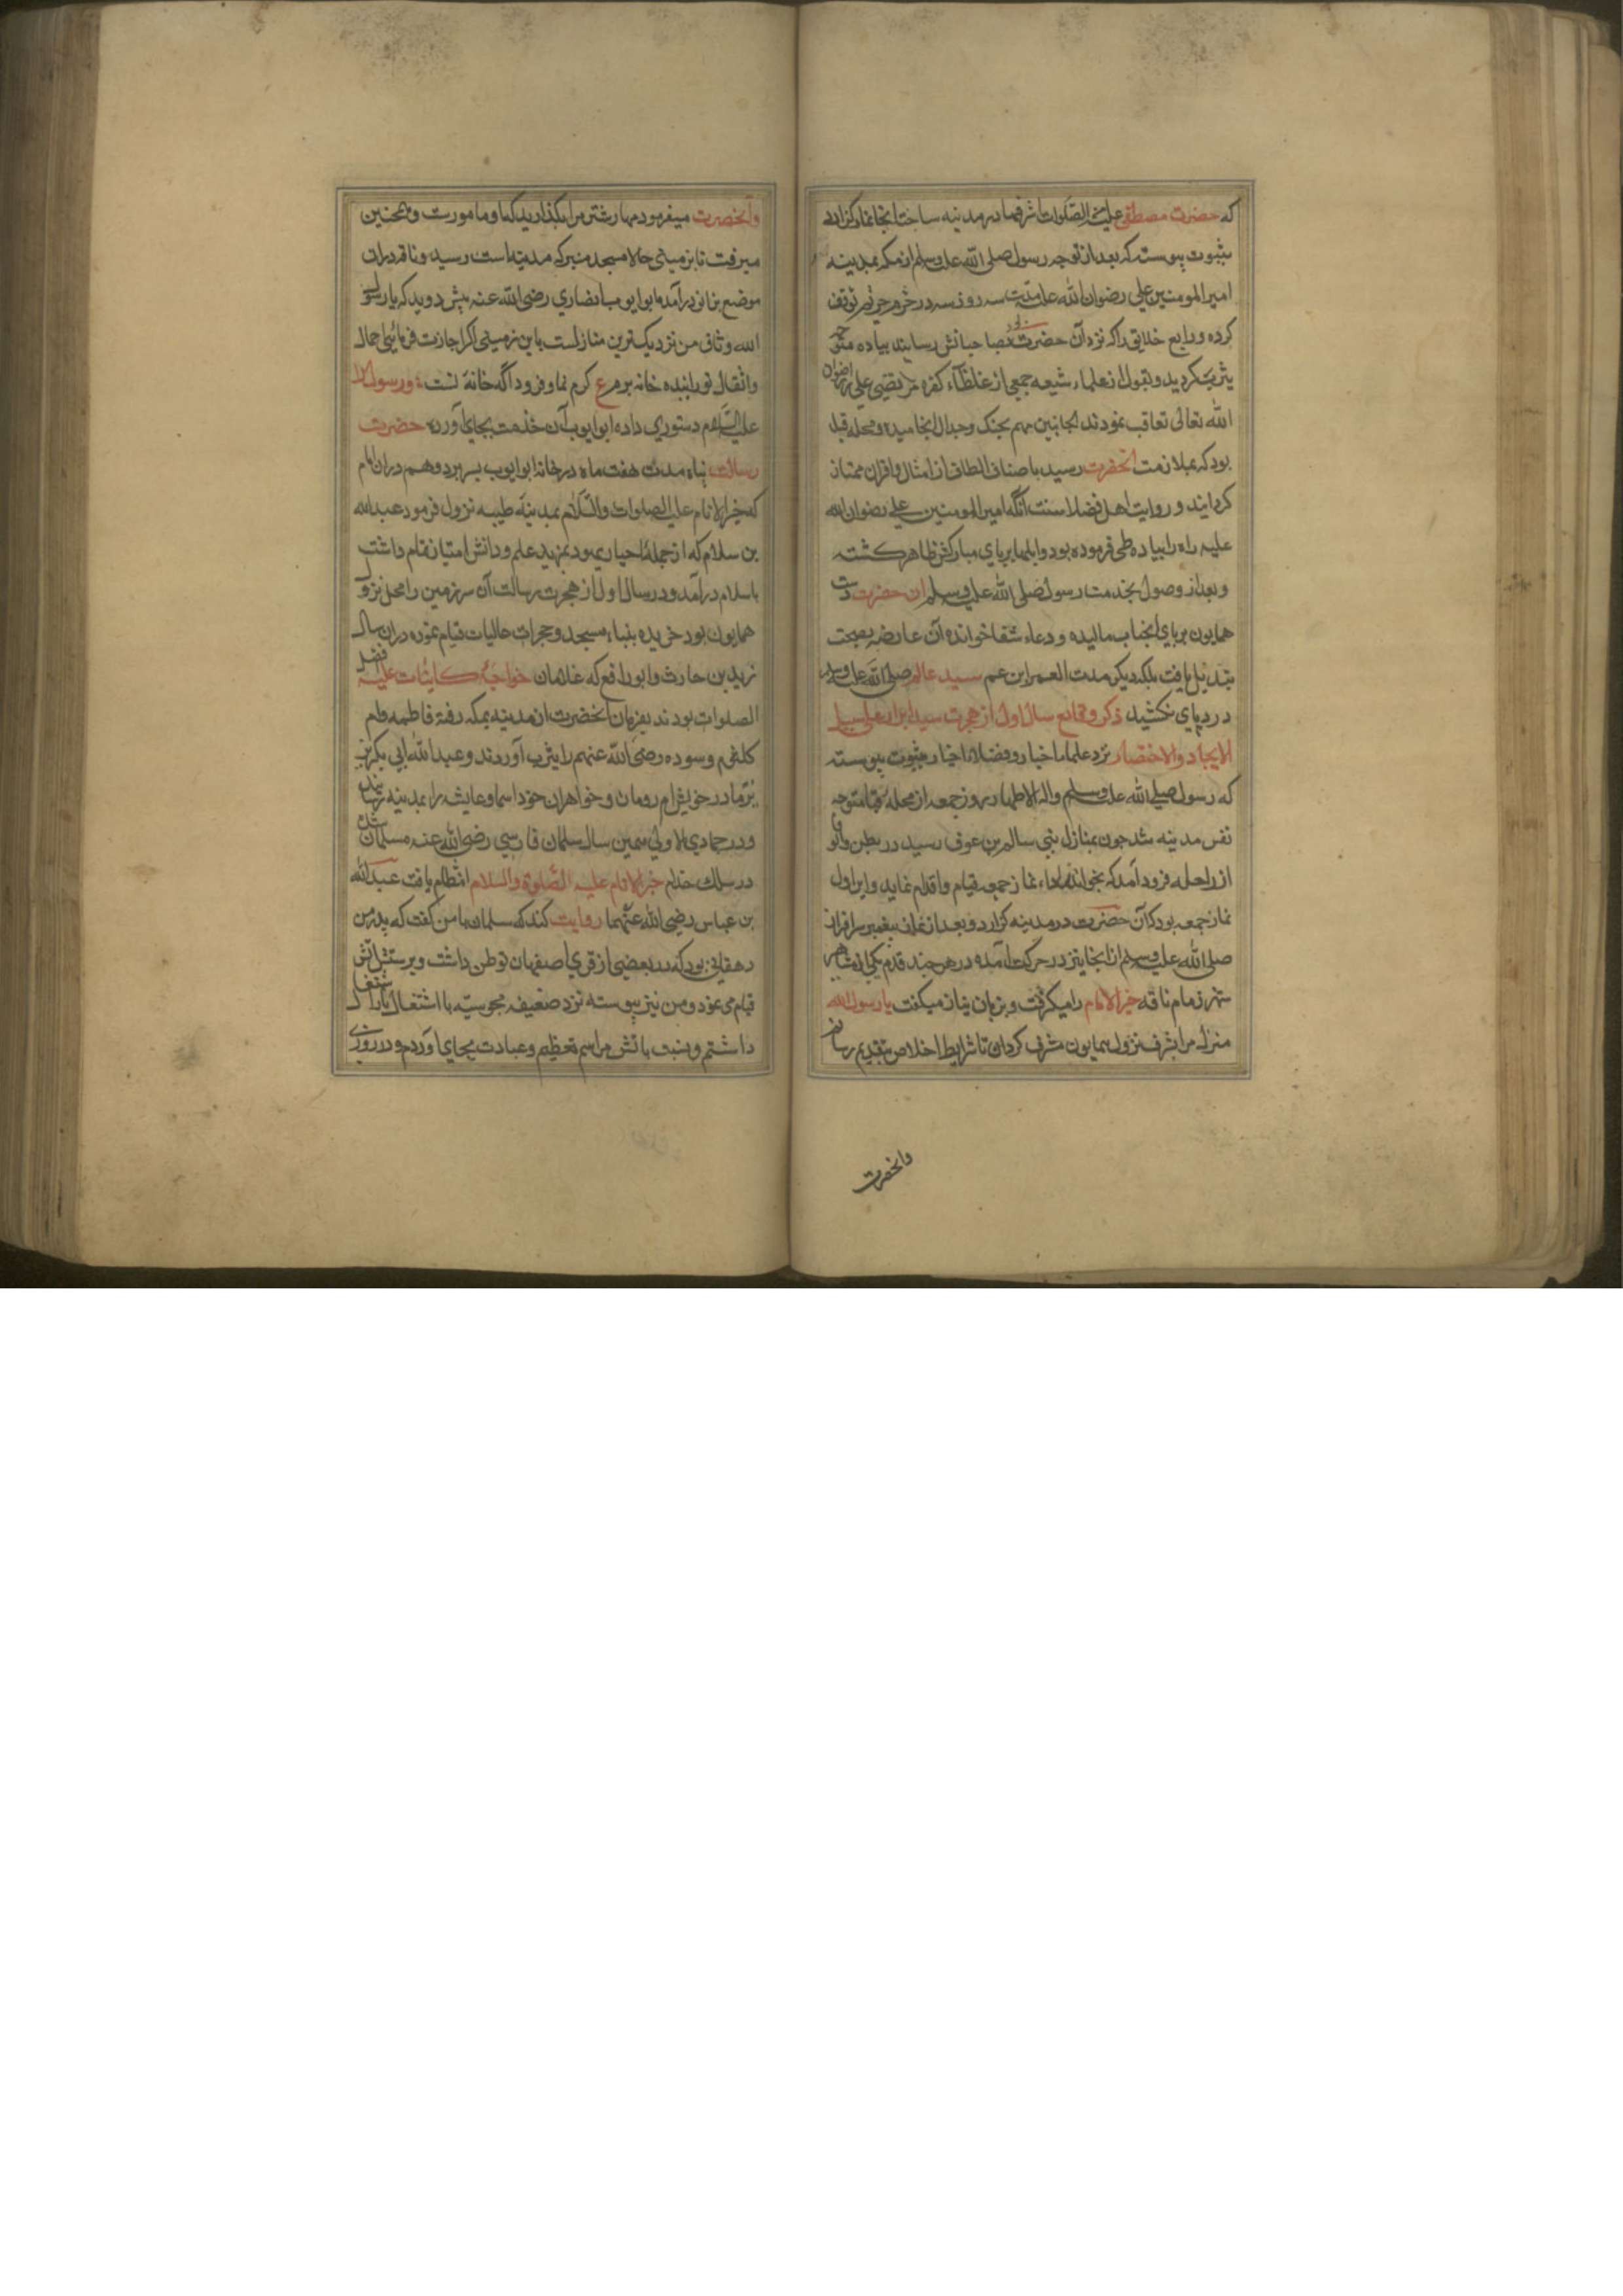 که حضرت مصطفی علیه من الصلوات اشرفها در مدینه ساخت انجا نماز کزارد
بثبوت پیوسته که بعد از توجه رسول صلی الله علیه وسلم از مکه بمدینه
امیر المومنین علی رضوان الله علیه سه روز در حرم توقف
کرده ودایع خلایق را که نزد آن حضرت بود بصاحبانش رسانید پیاده متوجه
یثرب کردید وبقول از علماء شیعه جمعی از غلظاء کفره مرتضی علی را رضوان
الله تعالی تعاقب نمودند الجانبین مهم بجنک وجدال انجامیده ومحله قبا
بود که بملازمت انحضرت رسید باصناف الطاف از امثال واقران ممتاز
کردانید و روایت اهل فضلا سنت انکه امیر المومنین علی رضوان الله
علیه راه را پیاده طی فرموده بود وابلها بر پای مبارکش ظاهر کشته
وبعد از وصول بخدمت رسول صلی الله علیه وسلم ان حضرت دست
همایون بر پای انجناب مالیده و دعاء شفا خوانده آن عارضه بصحت
تبدیل یافت بلکه دیکر مدت العمر ابن عم سید عالم صلی الله علیه وسلم
درد پای نکشید ذکر وقایع سال اول از هجرت سید ابرار علی سبیل
الایجاد والاختصار نزد علماء اخبار وفضلاء اخیار بثبوت پیوسته
که رسول صلی الله علیه وسلم واله الاطهار روز جمعه از محله قبا متوجه
نفس مدینه شد چون بمنازل بنی سالم بن عوف رسید در بطن وادی
از راحله فرود آمد که بخواند اداء نماز جمعه قیام واقدام نماید واین اول
نماز جمعه بود که آن حضرت در مدینه کزارد وبعد از نماز پیغمبر سرافراز
صلی الله علیه وسلم از انجا نیز در حرکت آمده در هر چند قدم یکی از مشاهیر
شهر زمام ناقه خیر الانام را میکرفت و بزبان نیاز میکفت یا رسول الله
منزل مرا بشرف نزول همایون مشرف کردان تا شرایط اخلاص بتقدیم رسانم
وانحضرت
وآنحضرت میفرمود مهار شتر مرا بکذارید کها ومامورت وهمچنین
میرفت تا بزمینی حالا مسجد منبر که مدینه است رسید وناقه دران
موضع بزانو درآمد ابو ایوب انصاری رضی الله عنه پیش دوید که یا رسول
الله وثاق من نزدیکترین منازلست باین زمین اکر اجازت فرمائی احمال
واثقال تو را بنده خانه برم ع کرم نما وفرود اکه خانه تست ورسول
علیه السلام دستوری داده ابو ایوب آن خدمت بجای آورد حضرت
رسالت پناه مدت هفت ماه در خانه ابو ایوب بسر برد وهم دران ایام
که خیر الانام علیه الصلوات والسلام بمدینه طیبه نزول فرمود عبد الله
بن سلام که از جمله احبار یهود بمزید علم ودانش امتیاز تمام داشت
باسلام درآمد ودر سال اول از هجرت رسالت آن سرزمین را محل نزول
همایون بود خریده ببناء مسجد وحجرات عالیات قیام نموده دران سال
زید بن حارث وابو رافع که غلامان خواجه کاینات علیه افضل
الصلوات بودند بفرمان انحضرت از مدینه بمکه رفته فاطمه وام
کلثوم وسوده رضی الله عنهم را یثرب آوردند وعبد الله ابی بکر نیز
نیز مادر خویش ام رومان وخواهران خود اسما وعایشه را بمدینه رسانید
ودر جمادی الاولی همین سال سلمان فارسی رضی الله عنه مسلمان شده
در سلک خدام خیر الانام علیه الصلوة والسلام انتظام یافت عبد الله
بن عباس رضی الله عنهما روایت کند که سلمان با من کفت که پدر من
دهقانی بود که در بعضی از قری اصفهان توطن داشت وبپرستش آتش
قیام می نمود ومن نیز پیوسته نزد ضعیفه مجوسیه با اشتغال
داشتم ونسبت باتش مراسم تعظیم وعبادت بجای آوردم ودر روزی